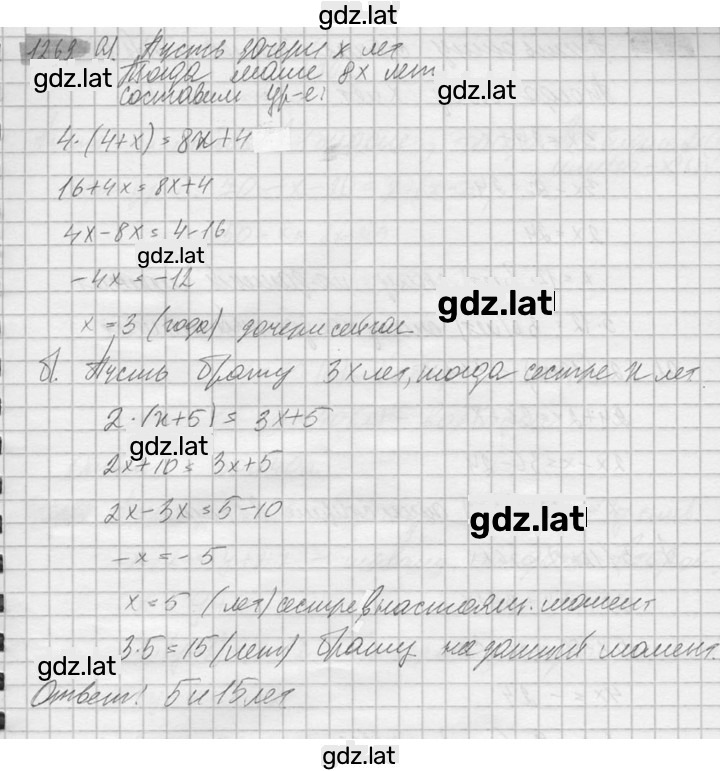 gdz.lat
1263 а). Пусть дочери x лет
Тогда маме 8x лет
gdz.lat
gdz.lat
составим ур-е:
4·(4+x)=8x+4
16+4x=8x+4
4x-8x=4-16
gdz.lat
-4x=-12
gdz.lat
x=3 (года) дочери сейчас
б). Пусть брату 3x лет, тогда сестре x лет.
2·(x+5)=3x+5
gdz.lat
2x+10=3x+5
2x-3x=5-10
gdz.lat
-x=-5
x=5 (лет) сестре в настоящ. момент
3·5=15 (лет) брату на данный момент.
gdz.lat
Ответ: 5 и 15 лет
gdz.lat